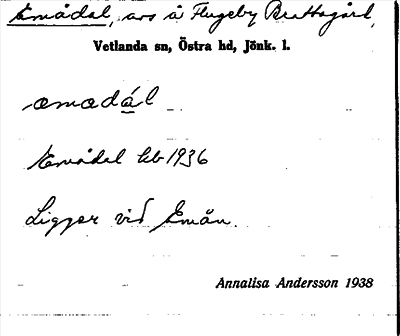 Emådal, avs å Flugeby Brattogård,
Vetlanda sn, Östra hd, Jönk. l.
æmædál
Emådal hb 1936
Ligger vid Emån.
Annalisa Andersson 1938